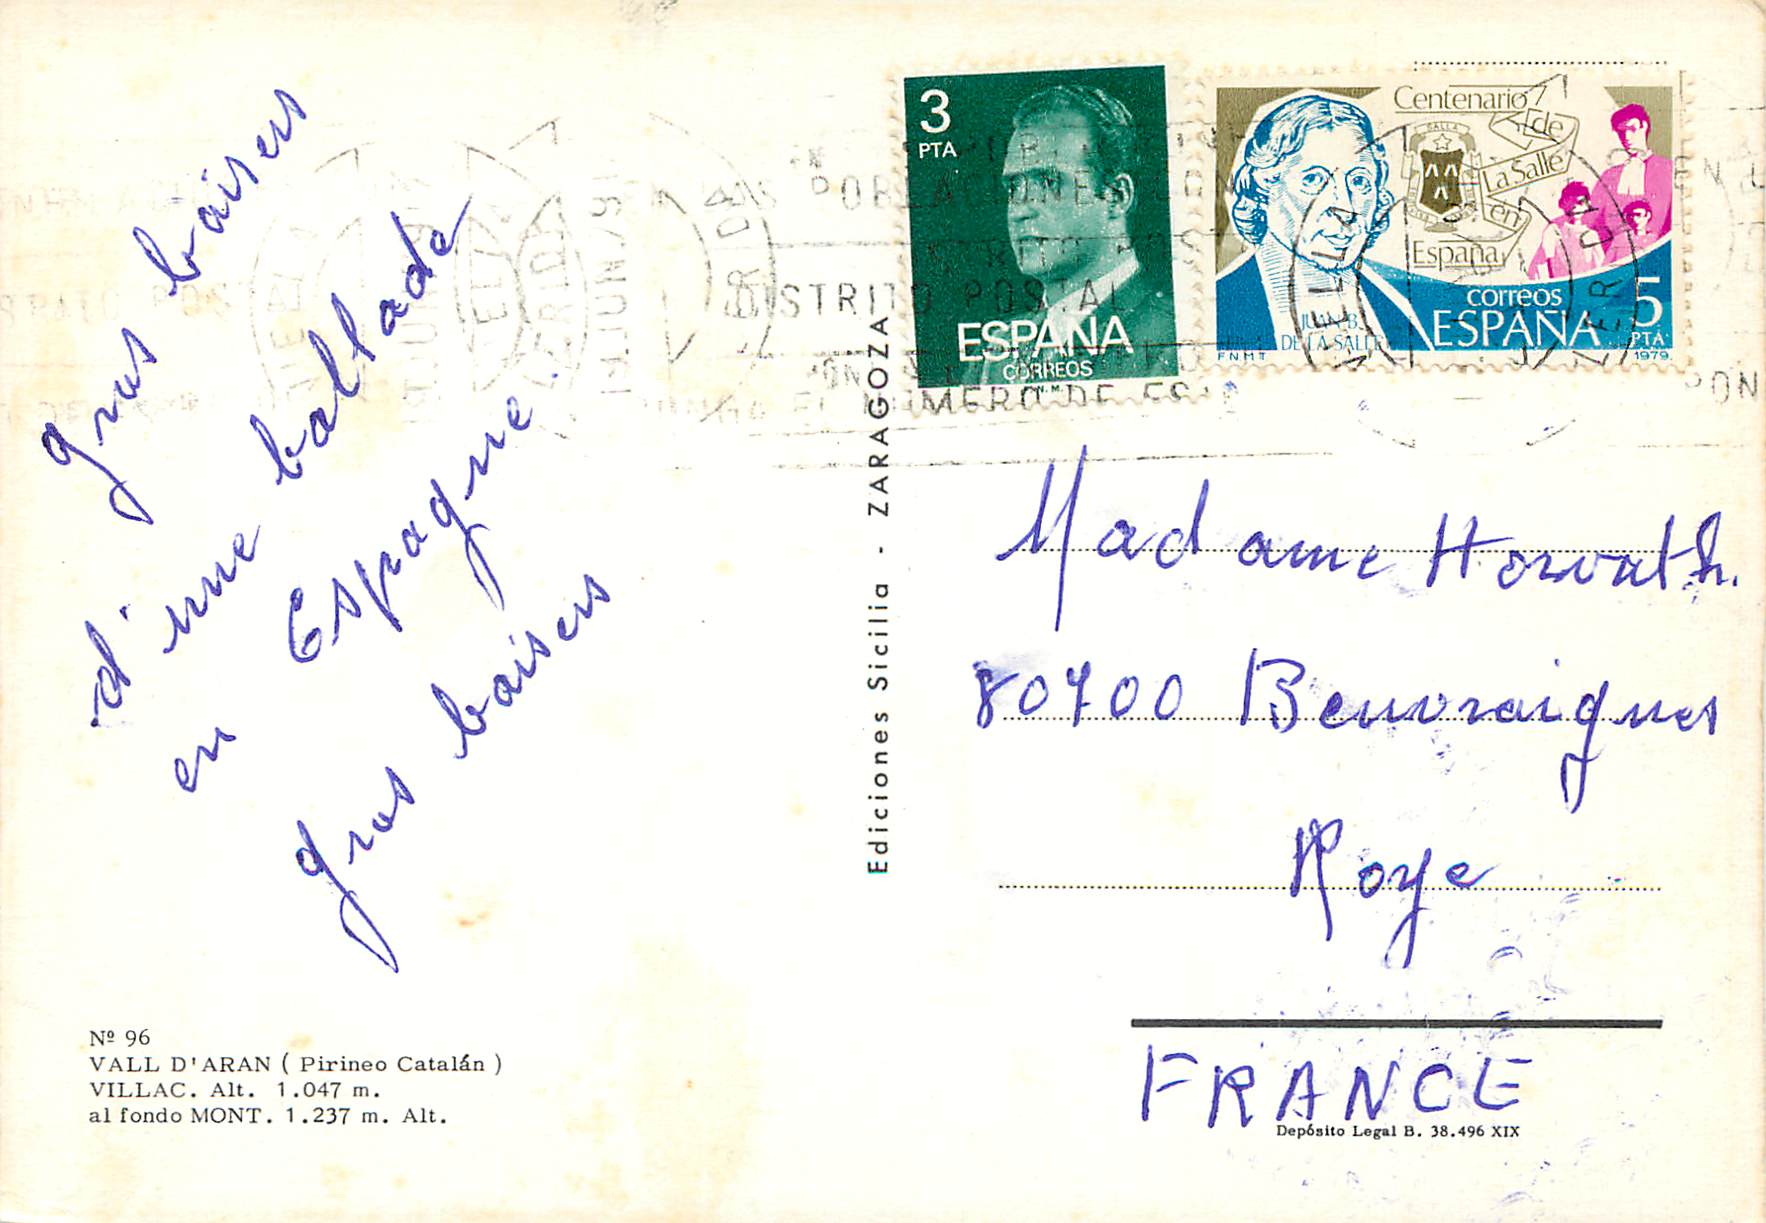 gros baisers
d'une ballade
en Espagne.
gros baisers
Nº 96
VALL D'ARAN ( Pirineo Catalán )
VILLAC. Alt. 1.047 m.
al fondo MONT. 1.237 m. Alt.
Ediciones Sicilia - ZARAGOZA
3
PTA
ESPAÑA
CORREOS
Centenario
de
La Salle
en
España
JUAN B.
DE LA SALLE
correos
ESPAÑA
5
PTA
F N M T
1979
POBLACIONES
DISTRITO POSTAL
Madame Horvath.
80700 Beuvraignes
Roye
FRANCE
Depósito Legal B. 38.496 XIX